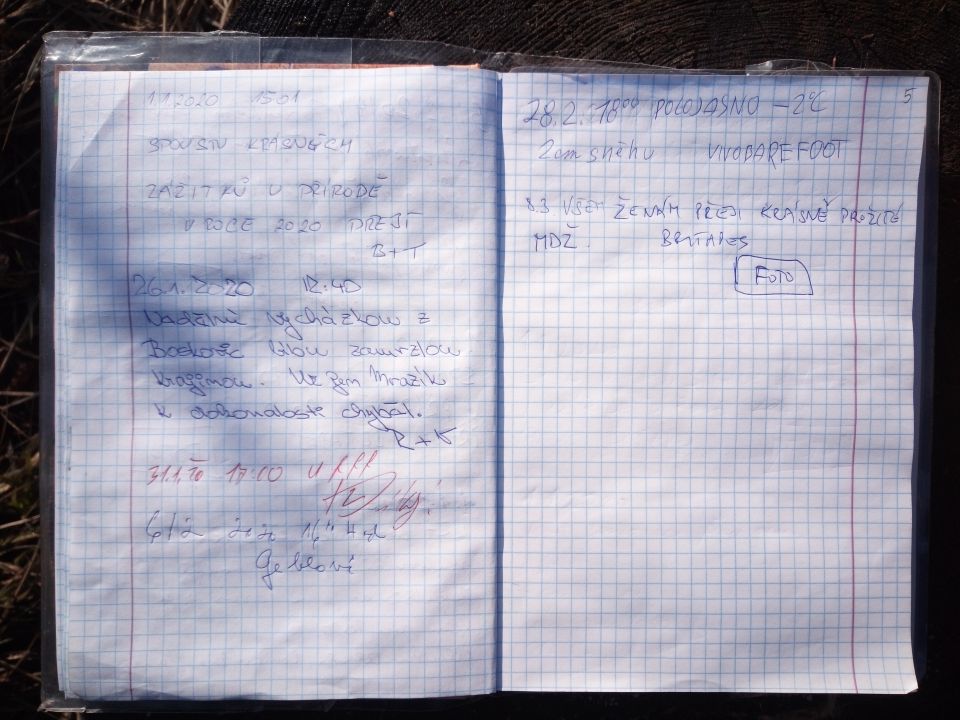 1.1.2020 15:01
SPOUSTU KRÁSNĚCH
ZÁŽITKŮ V PŘÍRODĚ
V ROCE 2020 PŘEJÍ
B+T
26.1.2020 12:40
vycházkou z
Boskovic zamrzlou
krajinou. Už jen Mrazík
k dokonalosti chyběl.
R + K
31.1.20 17:00
Geblovi
5
28.2. 18⁰⁰ POLOJASNO -2°C
2cm sněhu VIVOBAREFOOT
8.3. VŠEM ŽENÁM PŘEJI KRÁSNĚ PROŽITÉ
MDŽ.
FOTO